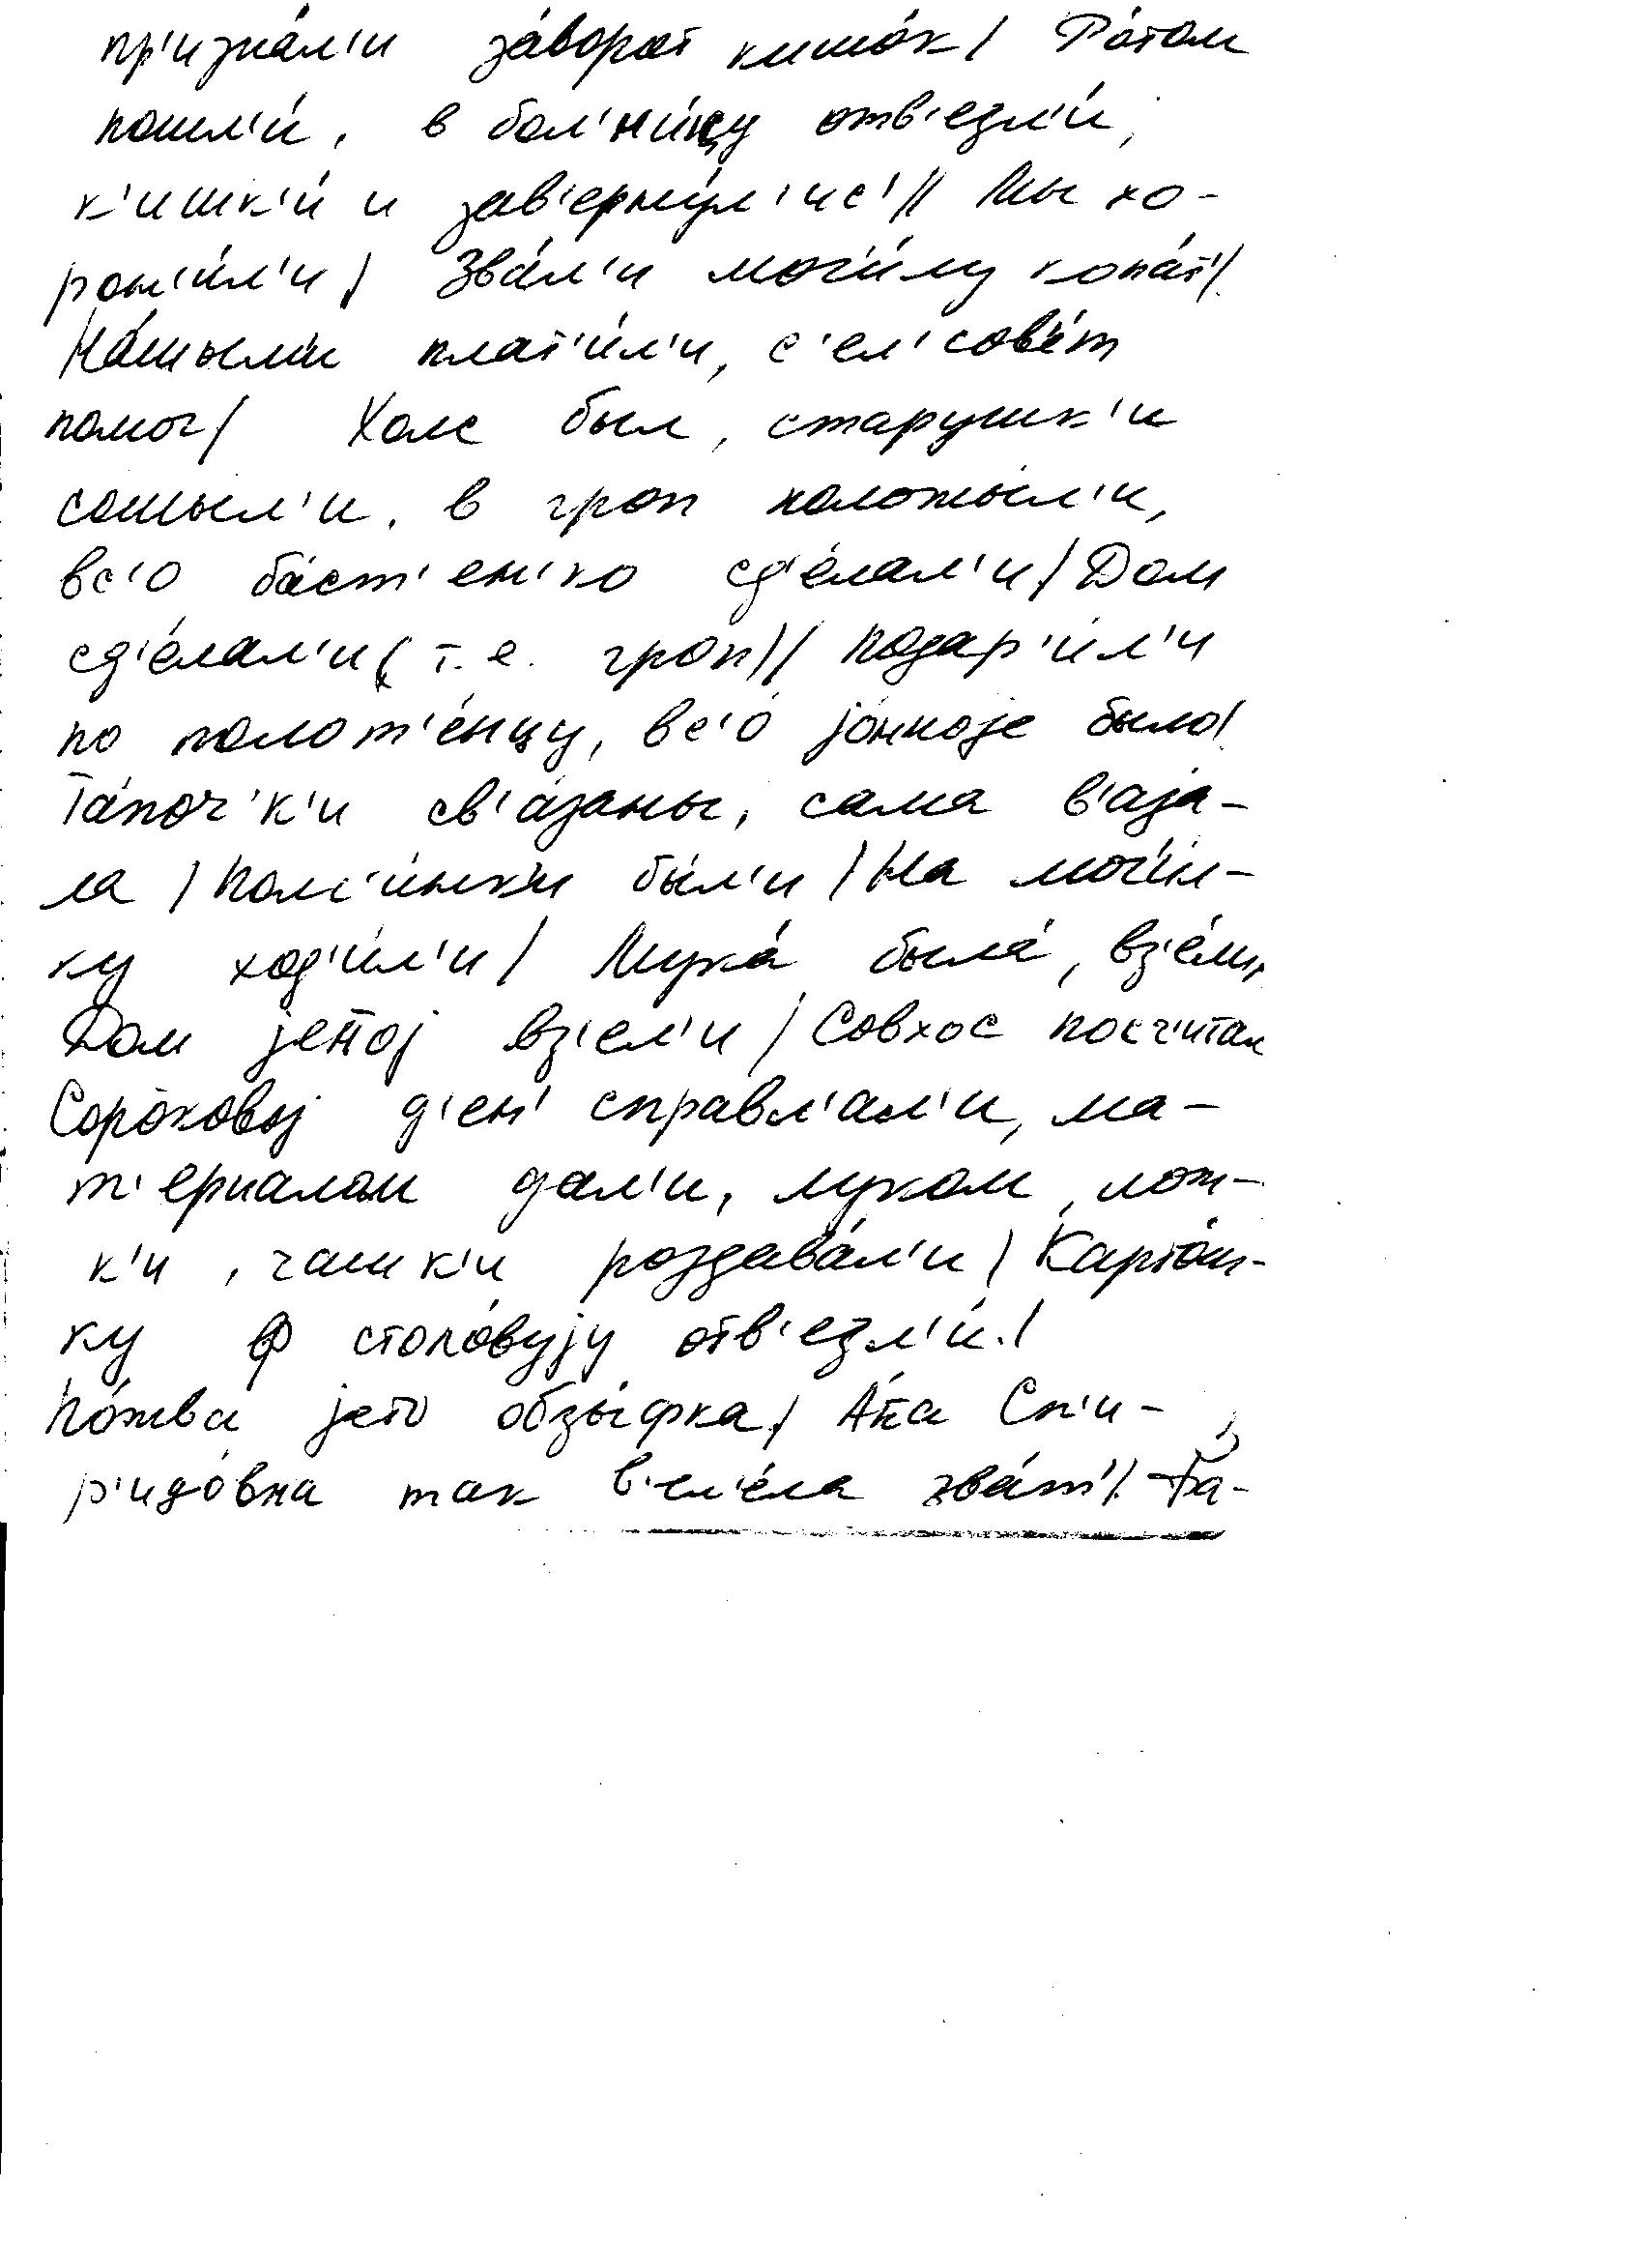 пр'изна́л'и за́ворот кишо́к / Ро́том
пошл'и́, в бол'ни́цу отв'езл'и́,
к'ишк'и́ и зав'ерну́л'ис' // Мы хо-
рон'и́л'и / Зва́л'и моги́лу копа́т' /
На́шыми плат'и́л'и, с'ел'сов'е́т
помог / Холс был, старушк'и
сошыл'и, в гроп положыл'и,
вс'о ба́ст'ен'ко сд'е́лал'и / Дом
сд'е́лал'и (т.е. гроп) / подар'и́л'и
по полот'е́нцу, вс'о́ јо́нноје было /
Та́поч'к'и св'а́заны, сама в'аза-
ла / Пом'и́нк'и бы́л'и / На моги́л-
ку ход'и́л'и / Мука́ была́, вз'е́ли,
Дом јеттој вз'ел'и / Совхос посч'итал
Соро́ковој д'ен' справл'ал'и, ма-
т'ериалом дал'и, муком, лож-
к'и, чашк'и роздава́л'и / Карто́ш-
ку ф столо́вују отв'езл'и́. /
По́жва јето обзы́фка / А́нна Сп'и-
р'идо́вна так в'ел'е́ла зва́т' /. Та-